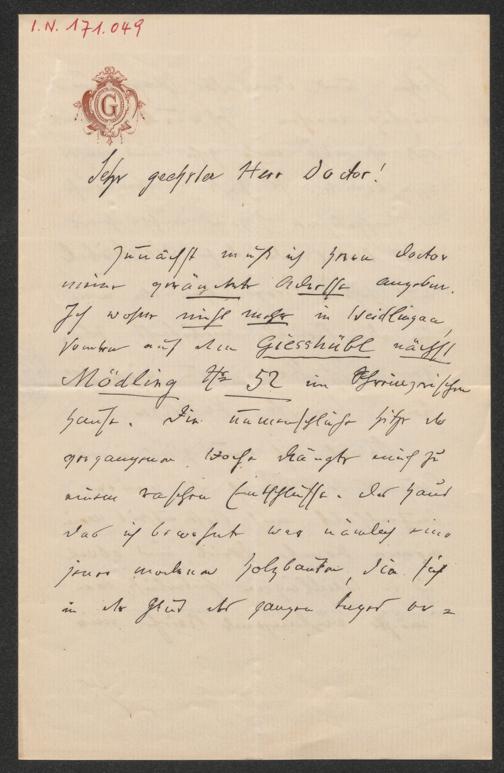 I.N. 171.049
G
Sehr geehrter Herr Doctor!
Zunächst muß ich Herrn Doctor
meine geänderte Adresse angeben.
Ich wohne nicht mehr in Weidlingau,
sondern auf dem Giesshübl nächst
Mödling Nr 52 im
Hause. Die unmenschliche Hitze der
vergangenen Woche drängte mich zu
einem raschen Entschlusse. Das Haus
das ich bewohnte war nämlich eines
jener modernen Holzbauten, die sich
in der Glut der ganzen Tages er=